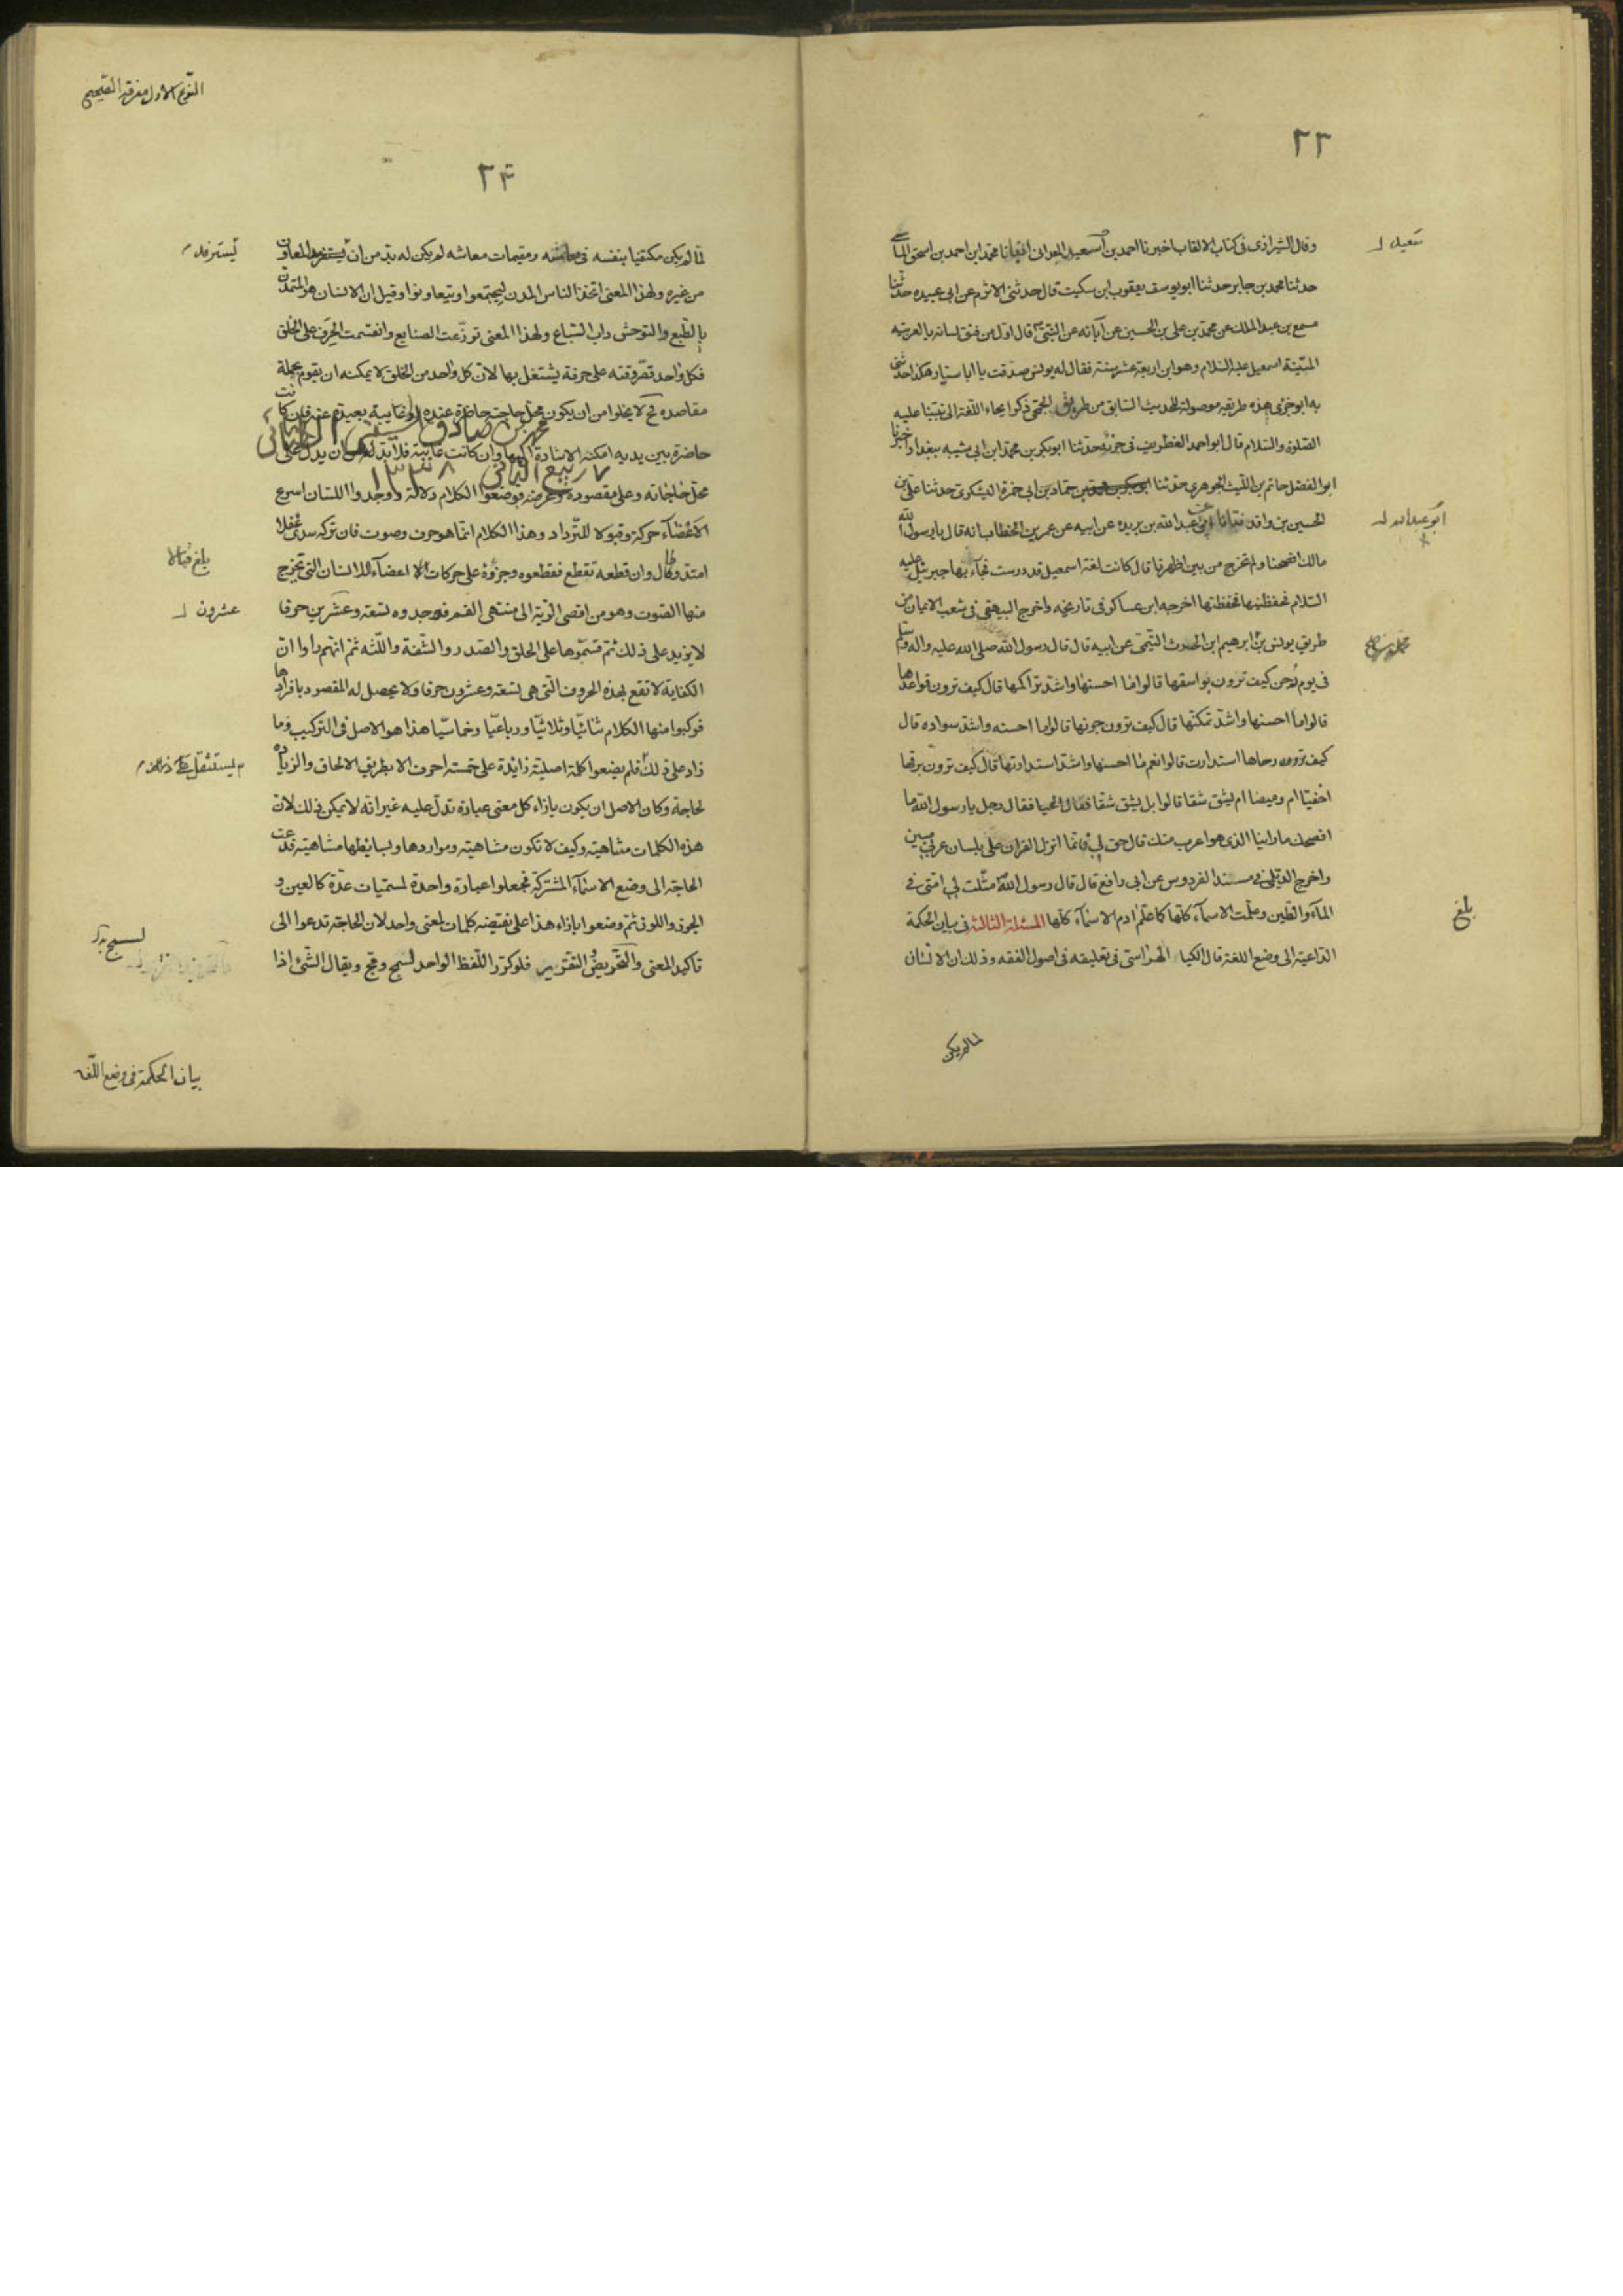 ٢٣
وقال الشيرازى فى كتاب الالقاب اخبرنا احمد بن سعيد المعدانى انبانا محمد ابن احمد بن اسحق الماسى
سعيد
حدثنا محمد بن جابر حدثنا ابو يوسف يعقوب ابن سكيت قال حدثنى الاثرم عن ابى عبيده حدثنا
مسمع بن عبد الملك عن محمد بن على بن الحسين عن آبائه عن النبى قال اول من فتق لسانه بالعربيه
المتينة اسمعيل عليه السلام وهو ابن اربعة عشر سنة فقال له يونس صدقت يا ابا سيار هكذا حدثنى
به ابو جزى هذه طريقه موصولة للحديث السابق من طريق الجمحى ذكر ايحاء اللغة الى نبينا عليه
الصلوة والسلام قال ابو احمد الغطريف فى جزئه حدثنا ابو بكر بن محمد ابن ابى شيبه ببغداد اخبرنا
ابو الفضل حاتم بن الليث الجوهرى حدثنا حماد بن ابى حمزة اليشكرى حدثنا على بن
الحسين بن واقد نبانا ابى عن عبد الله بن بريده عن ابيه عن عمر بن الخطاب انه قال يا رسول الله
ابو عبد الله
مالك افصحنا ولم تخرج من بين اظهرنا قال كانت لغة اسمعيل قد درست فجاء بها جبرئيل عليه
السلام فحفظنيها فحفظتها اخرجه ابن عساكر فى تاريخه واخرج البيهقى فى شعب الايمان من
طريق يونس بن ابرهيم ابن الحرث التيمى عن ابيه قال قال رسول الله صلى الله عليه واله وسلم
فى يوم دجن كيف ترون بواسقها قالوا ما احسنها واشد تراكمها قال كيف ترون قواعدها
قالوا ما احسنها واشد تمكنها قال كيف ترون جونها قالوا ما احسنه واشد سواده قال
كيف ترون رحاها استدارت قالوا نعم ما احسنها واشد استدارتها قال كيف ترون برقها
اخفيا ام وميضا ام يشق شقا قالوا بل يشق شقا فقال الحيا فقال رجل يا رسول الله ما
افصحك ما راينا الذى هو اعرب منك قال حق لى فانما انزل القران على بلسان عربى مبين
واخرج الديلمى فى مسند الفردوس عن ابى رافع قال قال رسول الله مثلت لى امتى فى
المآء والطين وعلمت الاسمآء كلها كما علم ادم الاسمآء كلها المسئلة الثالثة فى بيان الحكمة
بلغ
الداعية الى وضع اللغة قال الكيا الهراسى فى تعليقه فى اصول الفقه وذلك ان الانسان
لما لم يكن
النوع الاول معرفة الصحيح
٢٤
لما لم يكن مكتفيا بنفسه فى معاشه ومقيمات معاشه لم يكن له بد من ان يسترفد المعاون
يسترفد
من غيره ولهذا المعنى اتخذ الناس المدن ليجتمعوا ويتعاونوا وقيل ان الانسان هو المتمدن
بالطبع والتوحش داب السباع ولهذا المعنى توزعت الصنايع وانقسمت الحرف على الخلق
فكل واحد قصر وقته على حرفة يشتغل بها لان كل واحد من الخلق لا يمكنه ان يقوم بجملة
مقاصده فح لا يخلوا من ان يكون محل حاجته حاضرة عنده او غايبة بعيدة عنه فان كانت
محمد بن صادق الحسينى
حاضرة بين يديه امكنه الاشارة اليها وان كانت غايبة فلا بد له من ان يدل على
ربيع الثانى ١٣٣٨
محل حاجاته وعلى مقصوده وغرضه فوضعوا الكلام دلالة ووجدوا اللسان اسرع
الاعضآء حركة وقبولا للترداد وهذا الكلام انما هو حرف وصوت فان تركه سدى غفلا
امتد وطال وان قطعه تقطع فقطعوه وجزؤه على حركات الاعضآء للانسان التى تخرج
بلغ قبالا
منها الصوت وهو من اقصى الرية الى منتهى الفم فوجدوه تسعة وعشرين حرفا
عشرون
لا يزيد على ذلك ثم قسموها على الحلق والصدر والشفة واللثه ثم انهم راوا ان
الكفاية لا تقع بهذه الحروف التى هى تسعة وعشرون حرفا ولا يحصل له المقصود بافرادها
فركبوا منها الكلام ثنائيا وثلاثيا ورباعيا وخماسيا هذا هو الاصل فى التركيب وما
زاد على ذلك فلم يضعوا كلمة اصلية زايدة على خمسة احرف الا بطريق الالحاق والزيادة
يستثقل
لحاجة وكان الاصل ان يكون بازاء كل معنى عبارة تدل عليه غير انه لا يمكن ذلك لان
هذه الكلمات متناهية وكيف لا تكون متناهية ومواردها وبسايطها متناهية فدعت
الحاجة الى وضع الاسمآء المشتركة فجعلوا عبارة واحدة لمسميات عدة كالعين و
الجون واللون ثم وضعوا بازاء هذا على نقيضه كلمات لمعنى واحد لان الحاجة تدعوا الى
تاكيد المعنى والتحريض والتقرير فلو كرر اللفظ الواحد لسمج ومج ويقال الشئ اذا
لسمج
بيان الحكمة فى وضع اللغه